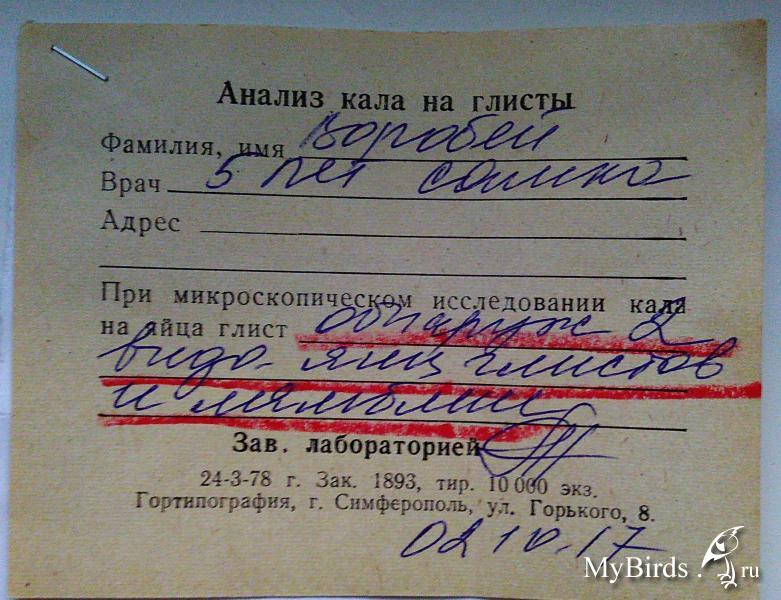 Анализ кала на глисты
Фамилия, имя Воробей
Врач 5 лет самка
Адрес
При микроскопическом исследовании кала
на яйца глист обнаруж 2
вида яиц глистов
и лямблии
Зав. лабораторией
24-3-78 г. Зак. 1893, тир. 10 000 экз.
Гортипография, г. Симферополь, ул. Горького, 8.
02 10.17
MyBirds.ru